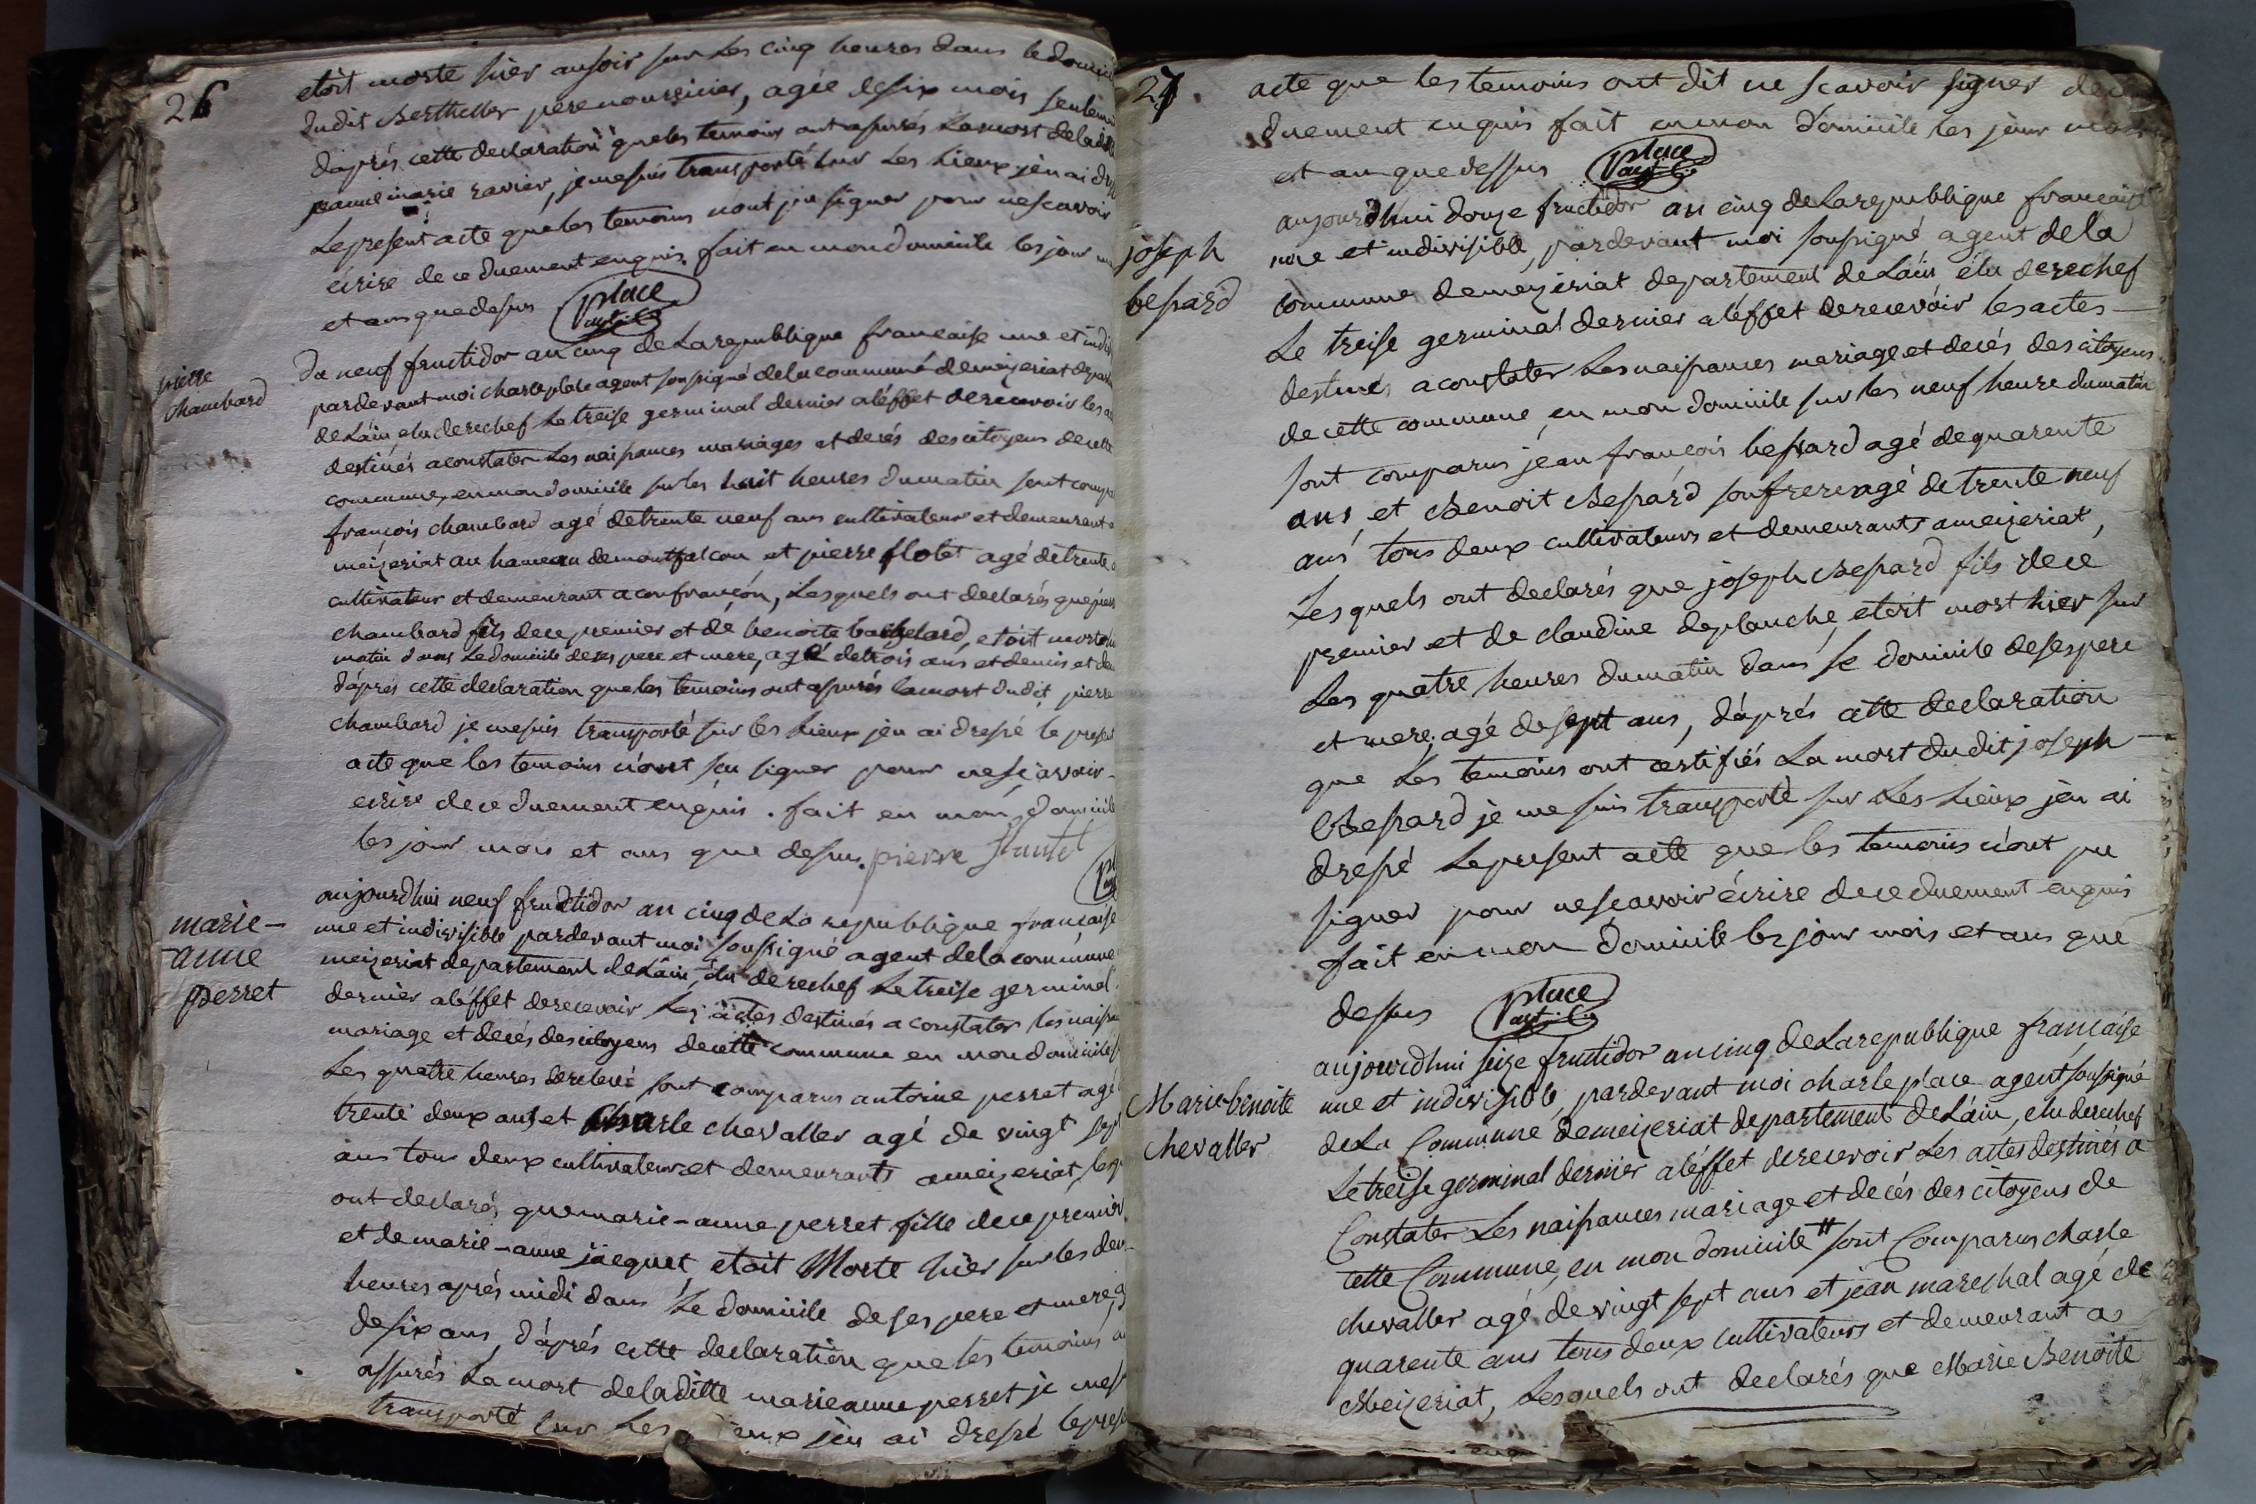 26
etoit morte hier ausoir sur les cinq heures dans le domicil
dudit Berthiller pere nourricier, agée desix mois seulem
daprés cette declaration que les temoins ont assurés la mort de ladi
jeanne marie ravier, je mesuis transporté sur les lieux jen ai dr
le present acte que les temoins nont pu signer pour nescavoir
écrire de ce duement enquis. fait en mon domicile les jour m
et ans que desus place agt
pierre
chambard
du neuf fructidor an cinq de la republique francaise une et indi
pardevant moi charle place agent sousigné dela communé demeizeriat depart
de Láin elu derechef le treise germinal dernier aléffet de recevoir les a
destinés a constater les naissances mariages et decés des citoyens de cette
commune, en mon domicile sur les huit heures du matin sont compa
françois chambard agé detrente neuf ans cultivateur et demeurant a
meizeriat au hameau demontfalcon et pierre flotet agé de trente
cultivateur et demeurant a confrançon, lesquels ont declarés que pierr
chambard fils dece premier et dé benoite bachelard, etoit mort
matin dans le domicile de ses pere et mere, agé de trois ans et demis et de
dáprés cette declaration que les temoins ont assurés la mort dudit pierre
chambard je mesuis transporté sur les lieux jen ai dressé le present
acte que les temoins n'ont scu signer pour ne sçavoir
ecrire de ce duement enquis. fait en mon domicile
les jour mois et ans que desus. pierre flautet
marie-
-anne
perret
aujourdhui neuf fructidor an cinq de la republique francaise
une et indivisible pardevant moi sousigné agent dela commune
meizeriat departement de Láin, élu derechef le treise germinal
dernier aléffet derecevoir les actes destinés a constater les naissan
mariage et decés des citoyens decette commune en mon domicile
les quatre heures sont comparus antoine perret agé
trente deux ans et Charle chevaller agé de vingt sept
ans tous deux cultivateurs et demeurants ameizeriat, lesq
ont declarés que marie-anne perret fille dece premier
et de marie-anne jacquet etoit Morte hier sur les deux
heures aprés midi dans le domicile de ses pere et mere, ag
desix ans, dáprés cette declaration que les temoins
assurés la mort deladitte marie anne perret je mes
transporté sur les lieux jen ai dressé le pres
27.
acte que les temoins ont dit ne scavoir signer de ce
duement enquis fait en mon domicile les jour mois
et an que dessus place agt
joseph
bessard
aujourdhui douze fructidor an cinq de la republique française
une et indivisible, pardevant moi sousigné agent de la
commune demeizeriat departement de Láin élu derechef
le treise germinal dernier aléffet de recevoir les actes
destinés a constater les naissances mariage et decés des citoyens
de cette commune, en mon domicile sur les neuf heure dumatin
sont comparus jéan françois bessard agé dequarente
ans et Benoit Bessard son frere agé de trente neuf
ans tous deux cultivateurs et demeurants ameizeriat,
lesquels ont declarés que joseph Bessard fils de ce
premier et de claudine deplanche, etoit mort hier sur
les quatre heures dumatin dans le domicile deses pere
et mere, agé de sept ans, dáprés cette declaration
que les temoins ont certifiés la mort du dit joseph
Bessard je me suis transporté sur les lieux jén ai
dressé le present acte que les temoins n'ont pu
signer pour ne scavoir écrire de ce duement enquis
fait en mon domicile les jour mois et ans que
desus place agt
Marie-benoite
chevaller
aujourdhui seize fructidor an cinq de la republique française
une et indivisible, pardevant moi charle place agent sousigné
de La Commune demeizeriat departement de Láin, elu derechef
le treise germinal dernier aléffet derecevoir les actes destinés a
Constater les naissances mariage et decés des citoyens de
cette Commune, en mon domicile # sont Comparus charle
chevaller agé de vingt sept ans et jean marechal agé de
quarente ans tous deux cultivateurs et demeurant a
Meizeriat, lesquels ont declarés que Marie Benoite